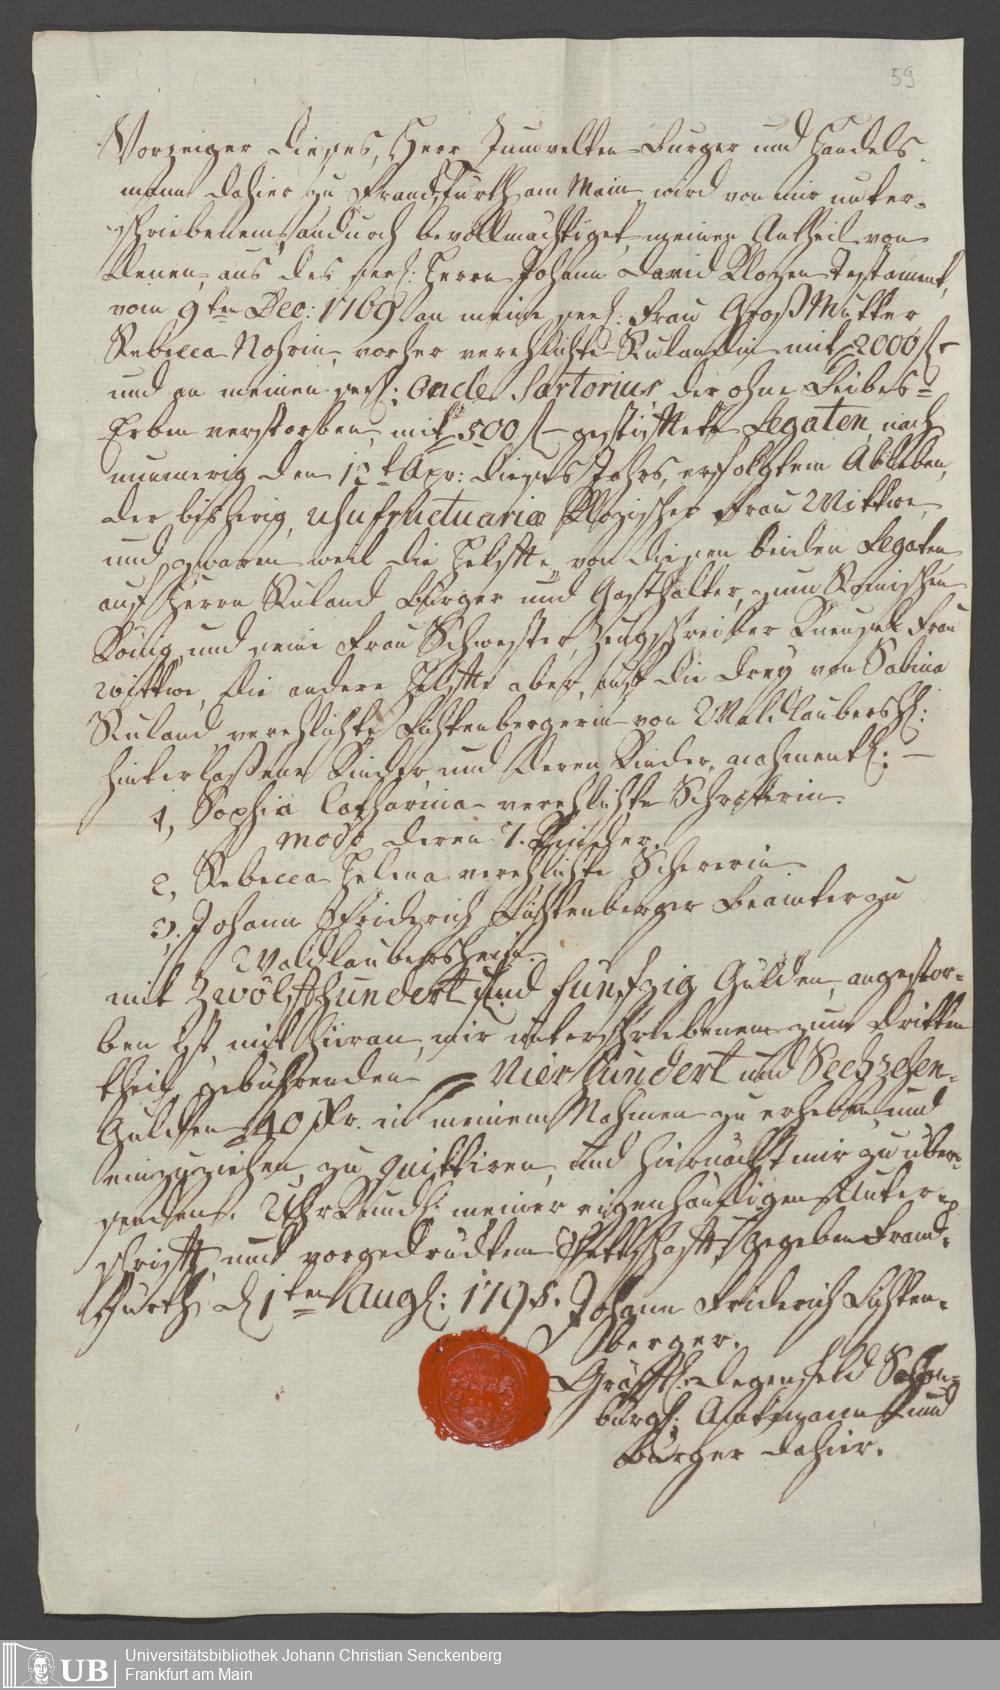 59
Vorzeiger dieses, Herr Jumvelten Burger und Handels-
mann dahier zu Franckfurth am Main wird von mir unter-
schriebenem, andurch bevollmächtiget, meinen Antheil von
denen, aus des seel: Herrn Johann David Klozen Testament,
vom 9ten Dec: 1769 an meine seel: Frau Groß Mutter
Rebecca Nohrin, vorher verehlichte Rulandin mit 2000 fl
und an meinen seel: Oncle Sartorius, der ohne Leibes-
Erben verstorben, mit 500 fl – gestiffteten Legaten, nach
nunmerig den 12t Apr: dieses Jahrs, erfolgtem Ableben,
der bisherig, usufructuariæ Klozischen Frau Wittwe,
und zwaren weil die Helffte von diesen beiden Legaten
auf Herrn Ruland Burger und Gasthalter, zum Römischen
König, und seine Frau Schwester, Zeugschreiber Kneusel Frau
Wittwe, die andere Helffte aber, auf die drey von Sabina
Ruland verehlichte Lichtenbergerin von Waldlaubersh:
hinterlaßene Kinder und deren Kinder, nahmentl: –
1, Sophia Catharina verehlichte Schröterin.
modo deren 7. Kinder.
2, Rebecca Helena verehlichte Schererin
3. Johann Friderich Lichtenberger Beamter zu
Waldlaubersheim.
mit Zwölffhundert und funfzig Gulden, angestor-
ben ist, mit hieran, mir unterschriebenem zum dritten
theil gebührenden – Vierhundert und Sechzehen-
Gulden 40 Xr. in meinem Nahmen zu erheben und
einzuziehen, zu quittiren, und hiernächst mir zu über-
senden. Uhrkundl: meiner eigenhändigen Unter-
schrifft und vorgedrucktem Pettschafft, Gegeben Franck-
furth d 1ten Aug: 1795. Johann Friderich Lichten-
berger.
Gräffl: Degenfeld Schon-
burgl: Amtmann und
Burger dahier.
UB
Universitätsbibliothek Johann Christian Senckenberg
Frankfurt am Main